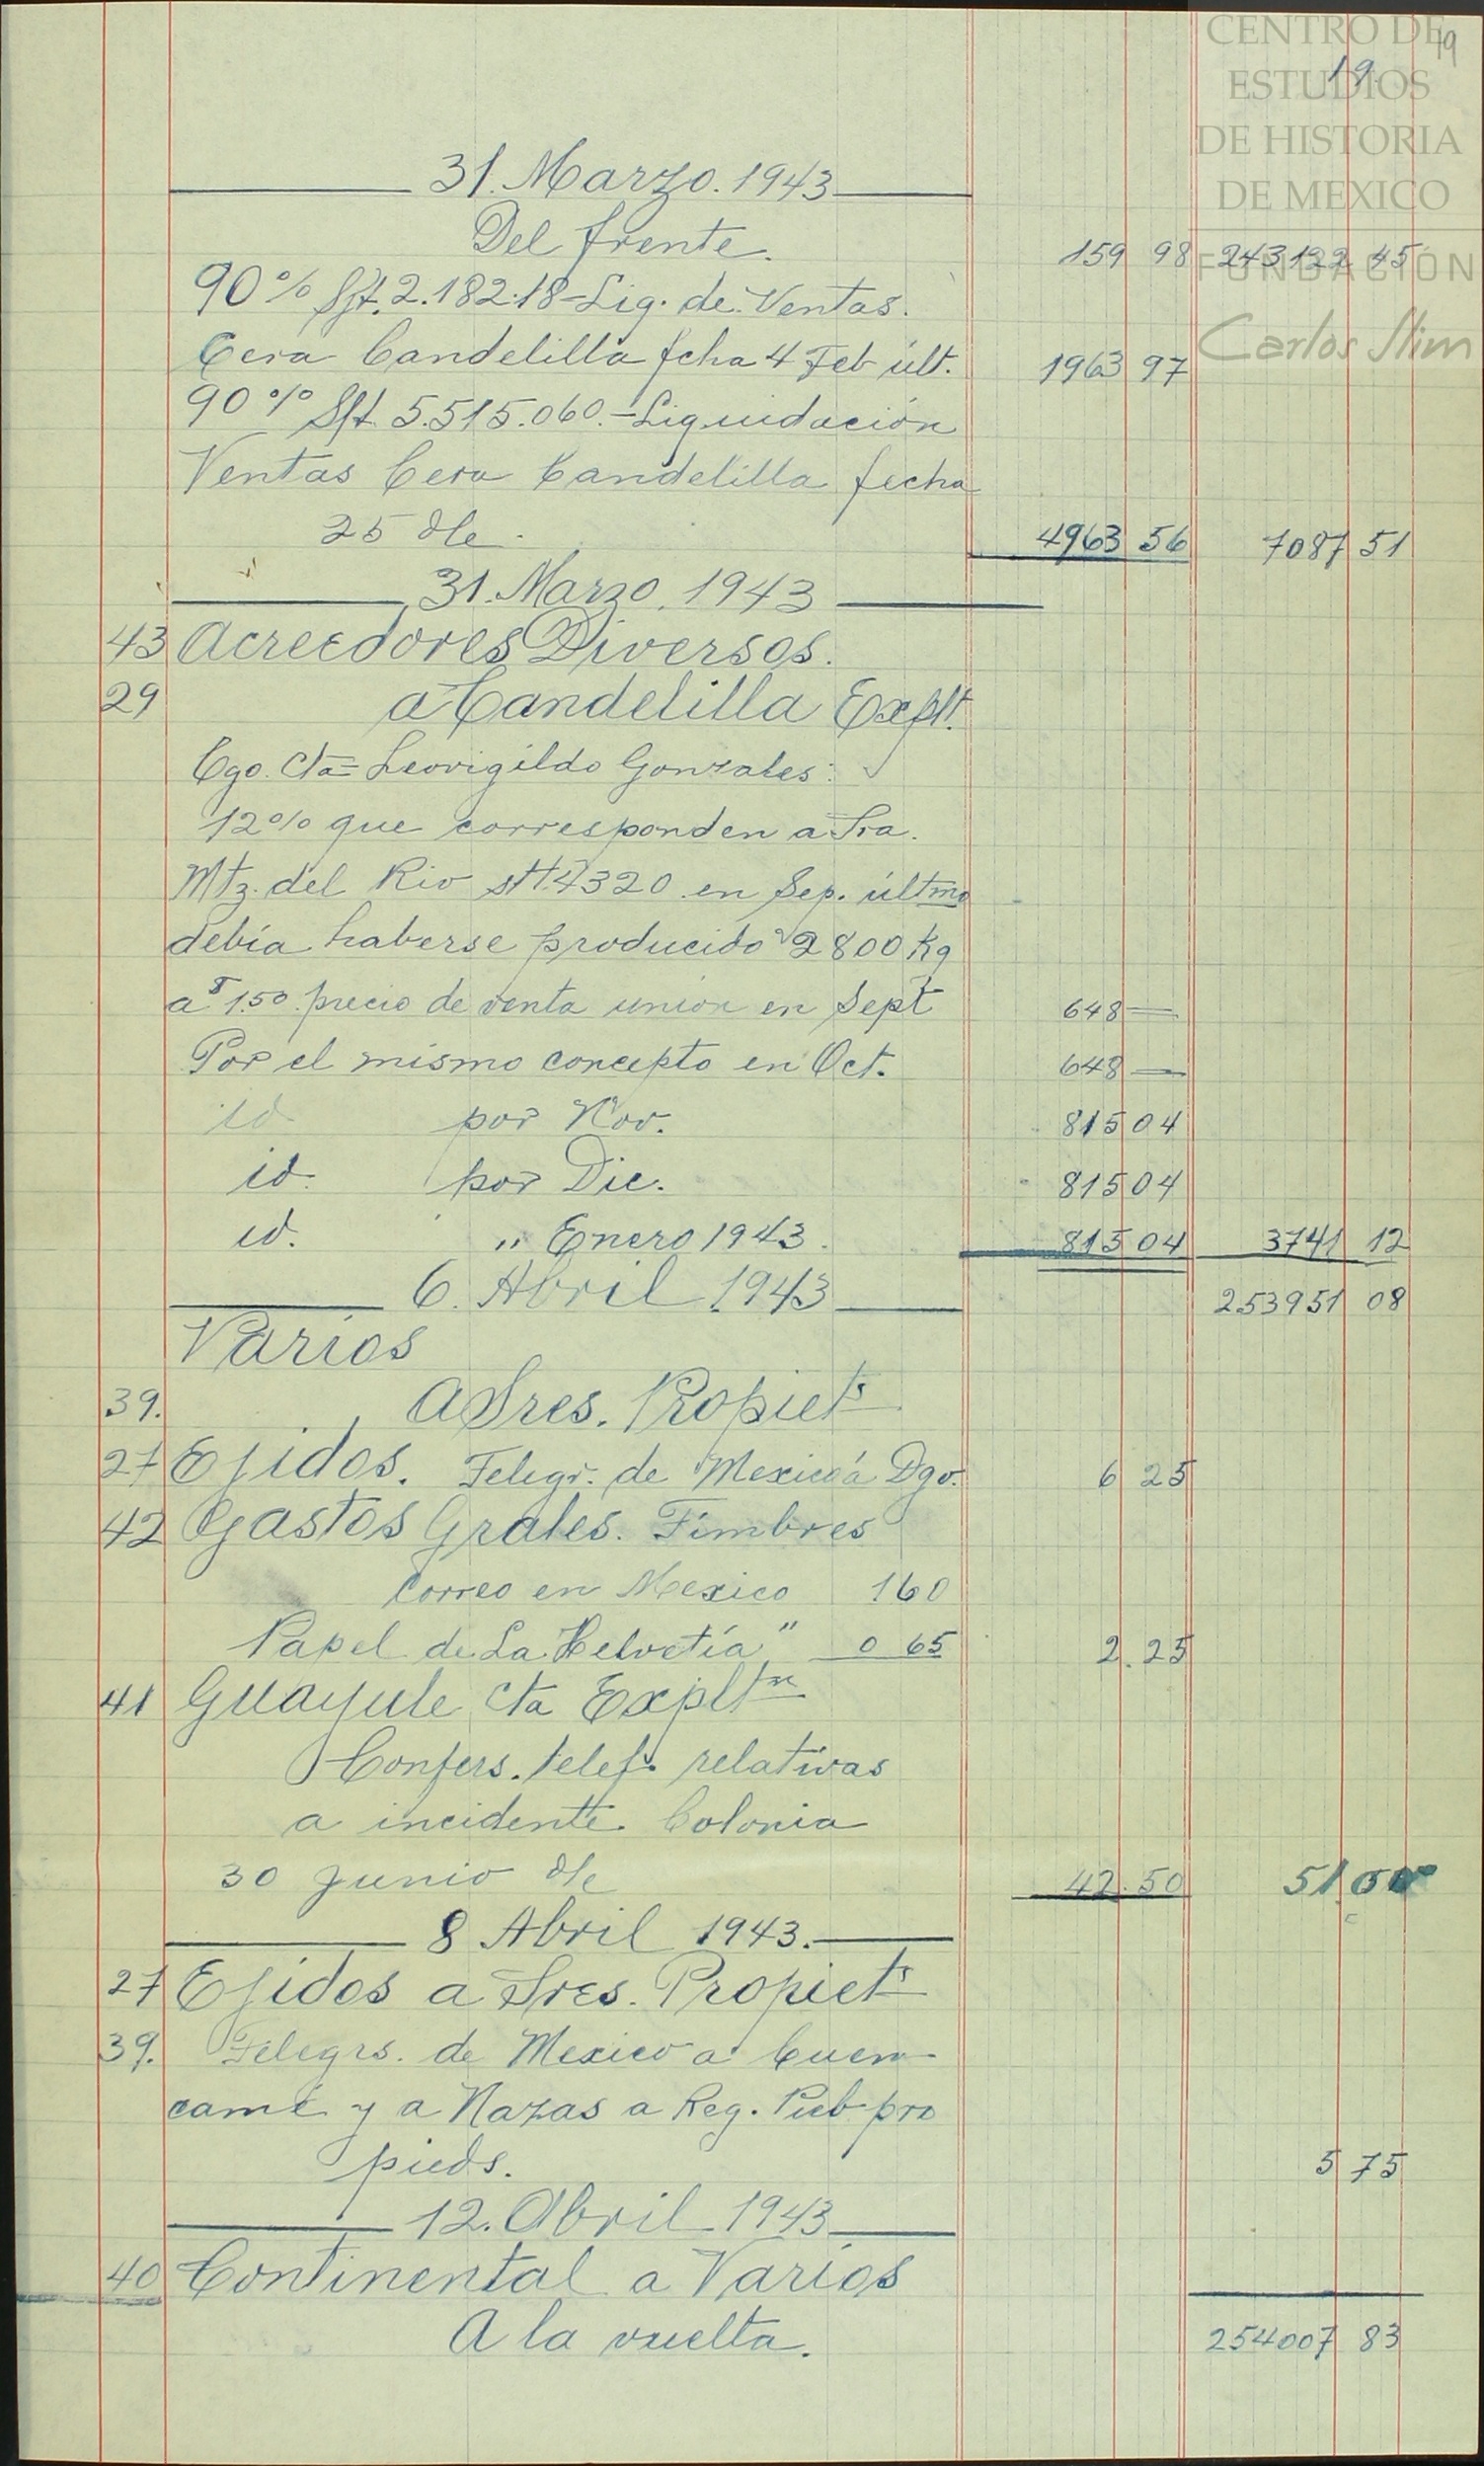 CENTRO DE
ESTUDIOS
DE HISTORIA
DE MEXICO
FUNDACIÓN
Carlos Slim
19
19.
31. Marzo. 1943
Del frente. 159 98 243122 45
90% S/t. 2.182.18 - Liq. de Ventas.
Cera Candelilla fcha 4 Feb últ. 1963 97
90% S/t 5.515.060. - Liquidación
Ventas Cera Candelilla fecha
25 d/e. 4963 56 7087 51
31. Marzo. 1943
43 Acreedores Diversos.
29 a Candelilla Explt.
Cgo. Cta = Leovigildo Gonzales:
12% que corresponden a Sra.
Mtz. del Rio s/t. 4320 en Sep. últmo
debía haberse producido 2800 Kg
a $1.50 precio de venta union en Sept 648 =
Por el mismo concepto en Oct. 648 =
id. por Nov. 815 04
id. por Dic. 815 04
id. " Enero 1943. 815 04 3741 12
6. Abril 1943 253951 08
Varios
39. A Sres. Propiets
27 Ejidos. Telegr. de Mexico á Dgo. 6 25
42 Gastos Grales. Timbres
Correo en Mexico 160
Papel de La Helvetía" 0 65 2.25
41 Guayule Cta Expltn
Confers. telef. relativas
a incidente Colonia
30 Junio d/e 42.50 51 00
8 Abril 1943.
27 Ejidos a Sres. Propiets
39. Telegrs. de Mexico a Cuen
camé y a Nazas a Reg. Pub pro
pieds. 5 75
12. Abril 1943
40 Continental a Varios
A la vuelta. 254007 83